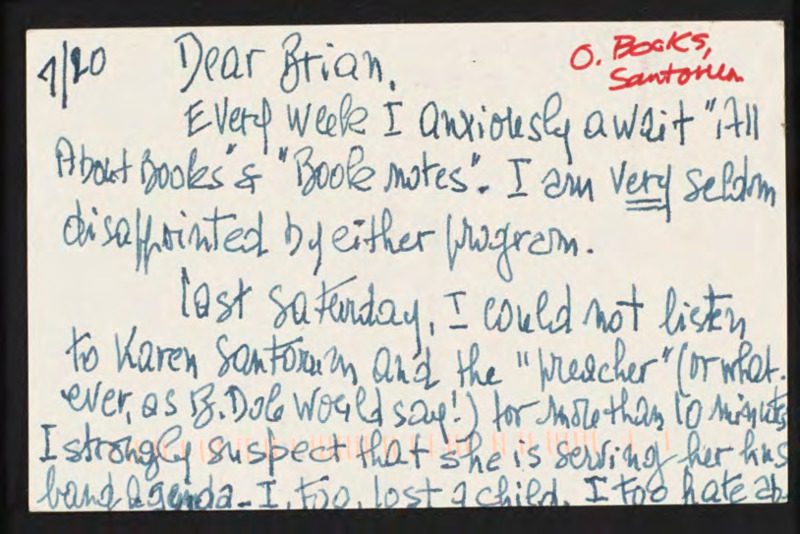 7/20 Dear Brian, O. Books,
Santorum
Every week I anxiously await "All
About Books" & "Book notes". I am very seldom
disappointed by either program.
last saturday, I could not listen
to Karen Santorum and the "preacher" (or what.
ever, as B. Dole would say!) for more than 10 minutes
I strongly suspect that she is serving her hus
band agenda - I, too, lost a child. I too hate ab